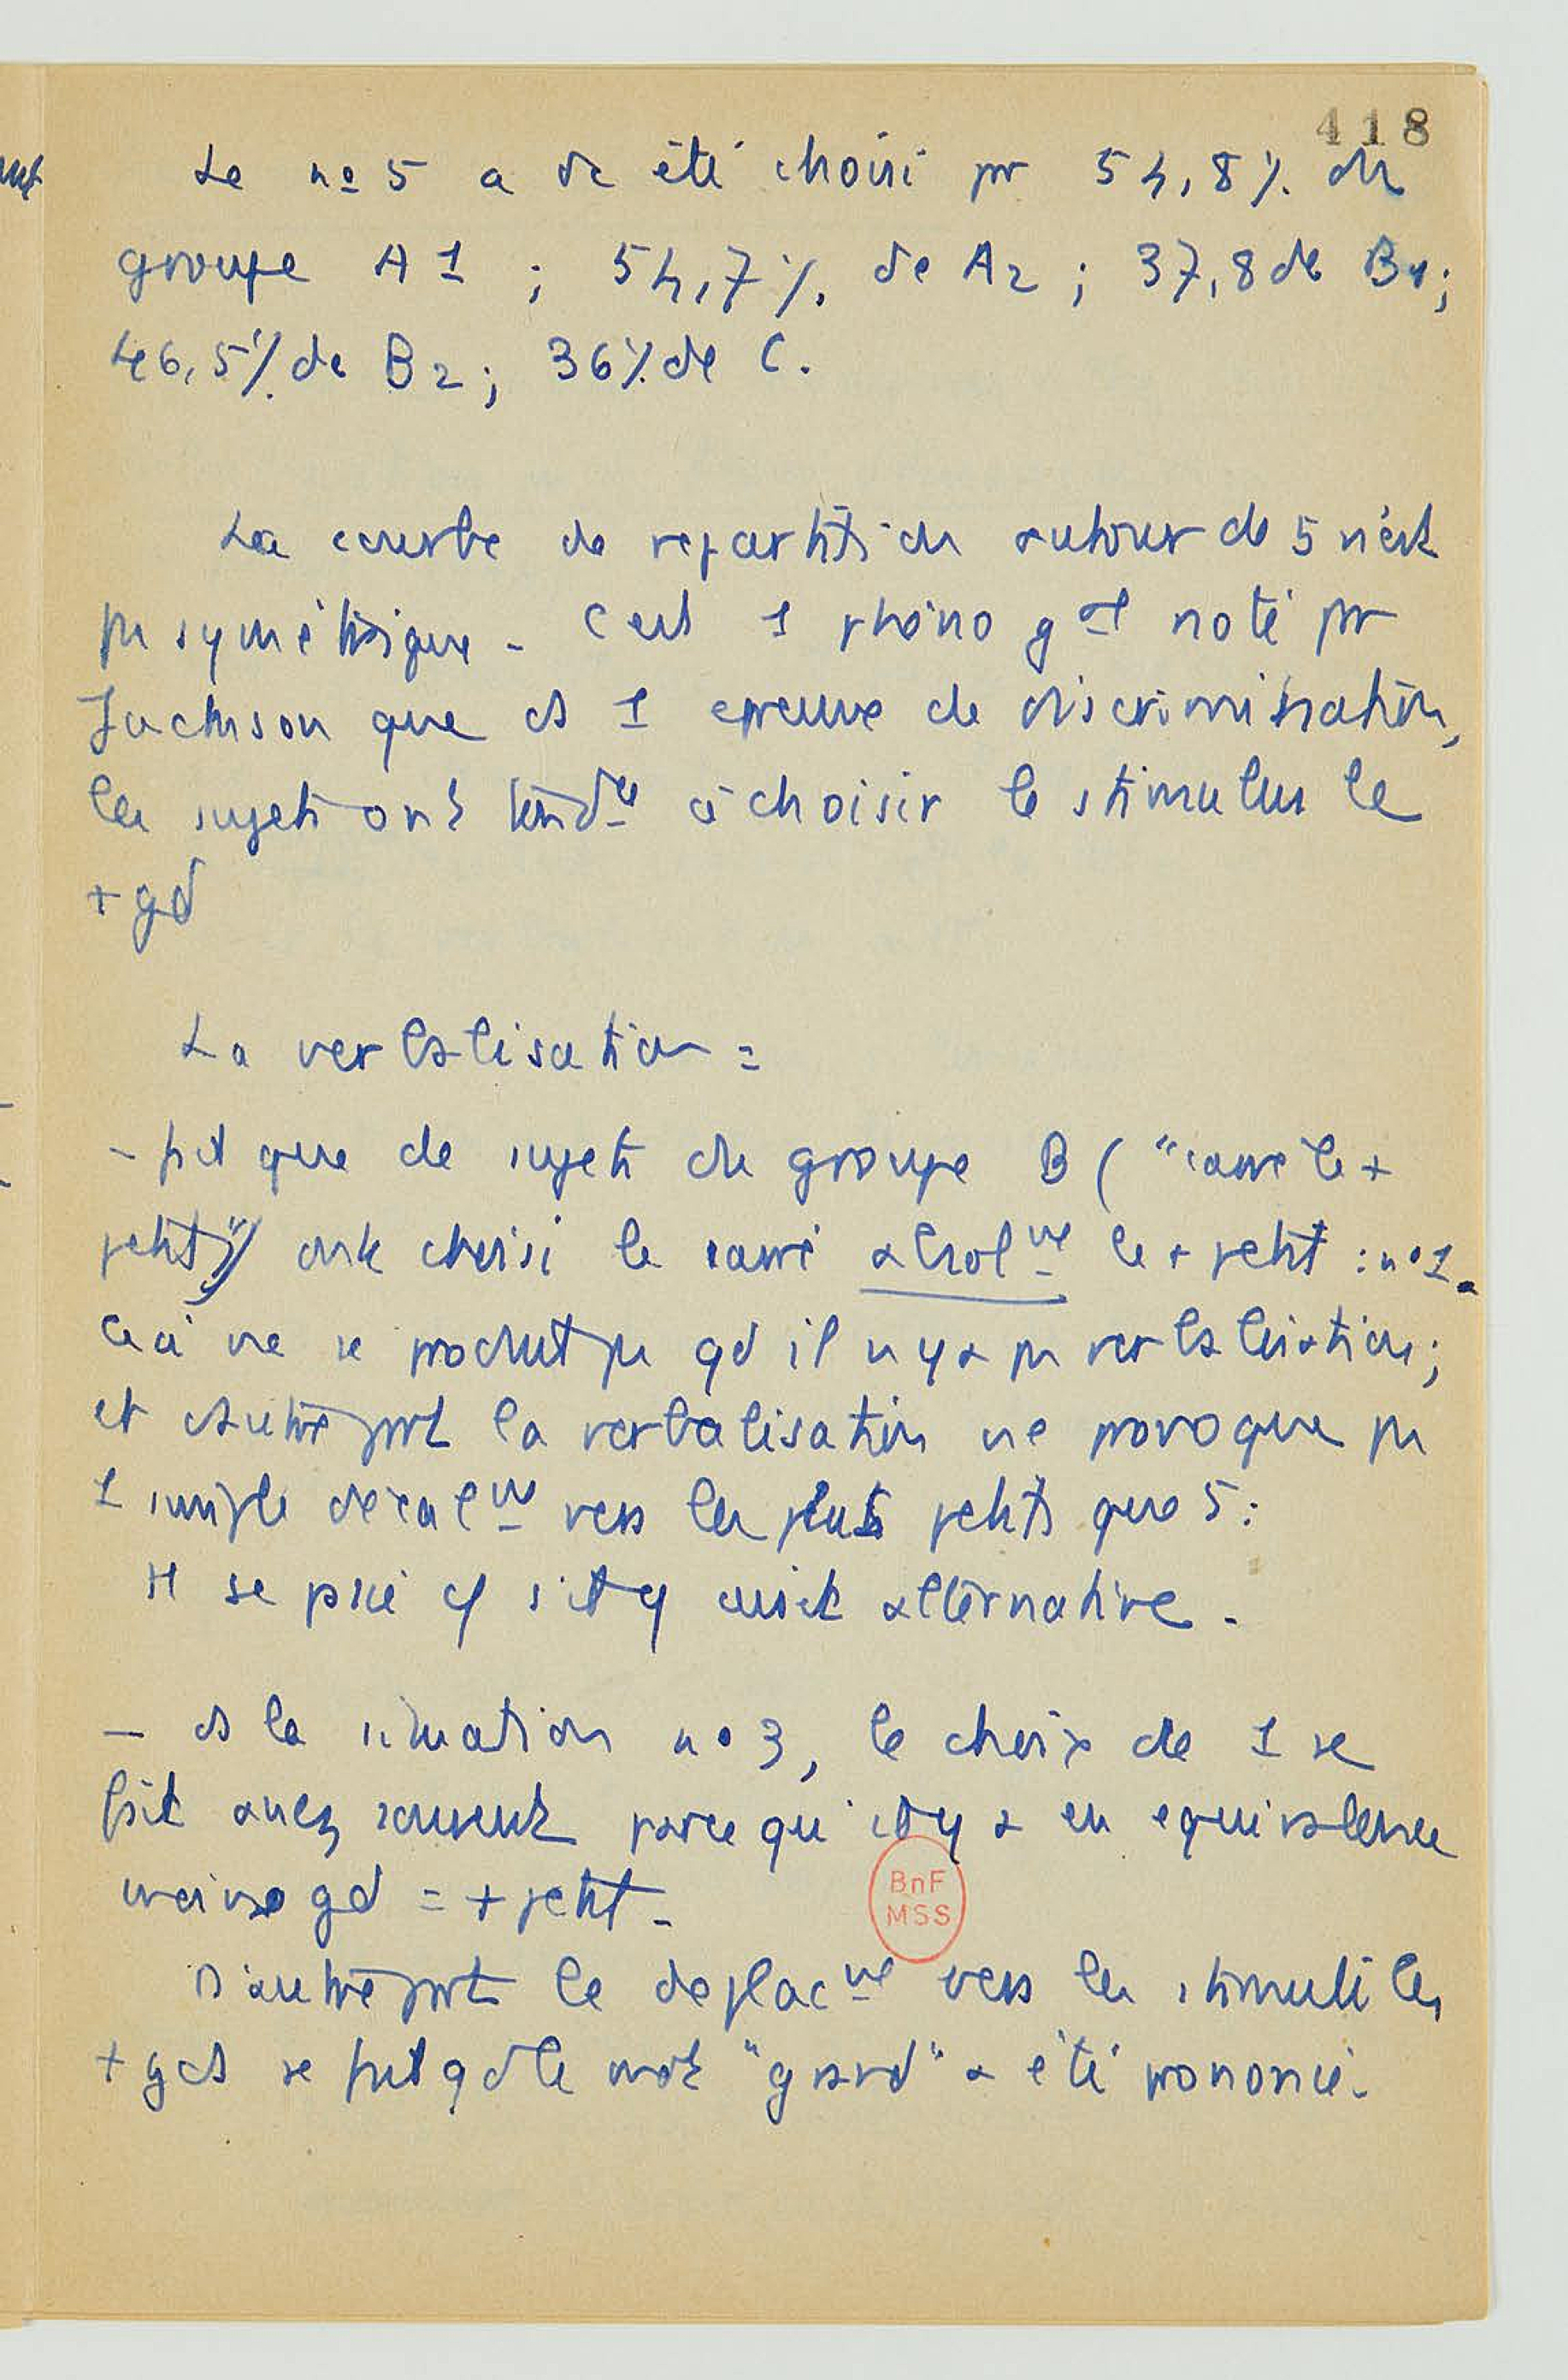 418
Le nº 5 a dc été choisi pr 54,8%. du
groupe A1 ; 54,7%. de A2 ; 37,8 de B1;
46,5% de B2; 36% de C.
La courbe de repartition autour de 5 n'est
pas symétrique. C'est 1 phéno gal noté par
Jackson que ds 1 epreuve de discrimination,
les sujets ont tendce à choisir le stimulus le
+ gd
La verbalisation =
- fait que de sujets du groupe B ("carré le +
petit") ont choisi le carré absolmt le + petit : nº 1.
Ceci ne se produit pas qd il n'y a pas verbalisation;
et d'autre part la verbalisation ne provoque pas
1 simple décalmt vers les plus petits que 5:
Il se
alternative.
- ds la situation nº 3, le choix de 1 se
fait assez souvent parce qu'il y a eu equivalence
moins gd = + petit.
D'autre part le deplacmt vers les stimuli les
+ gds se fait qd le mot "grand" a été prononcé.
BnF
MSS